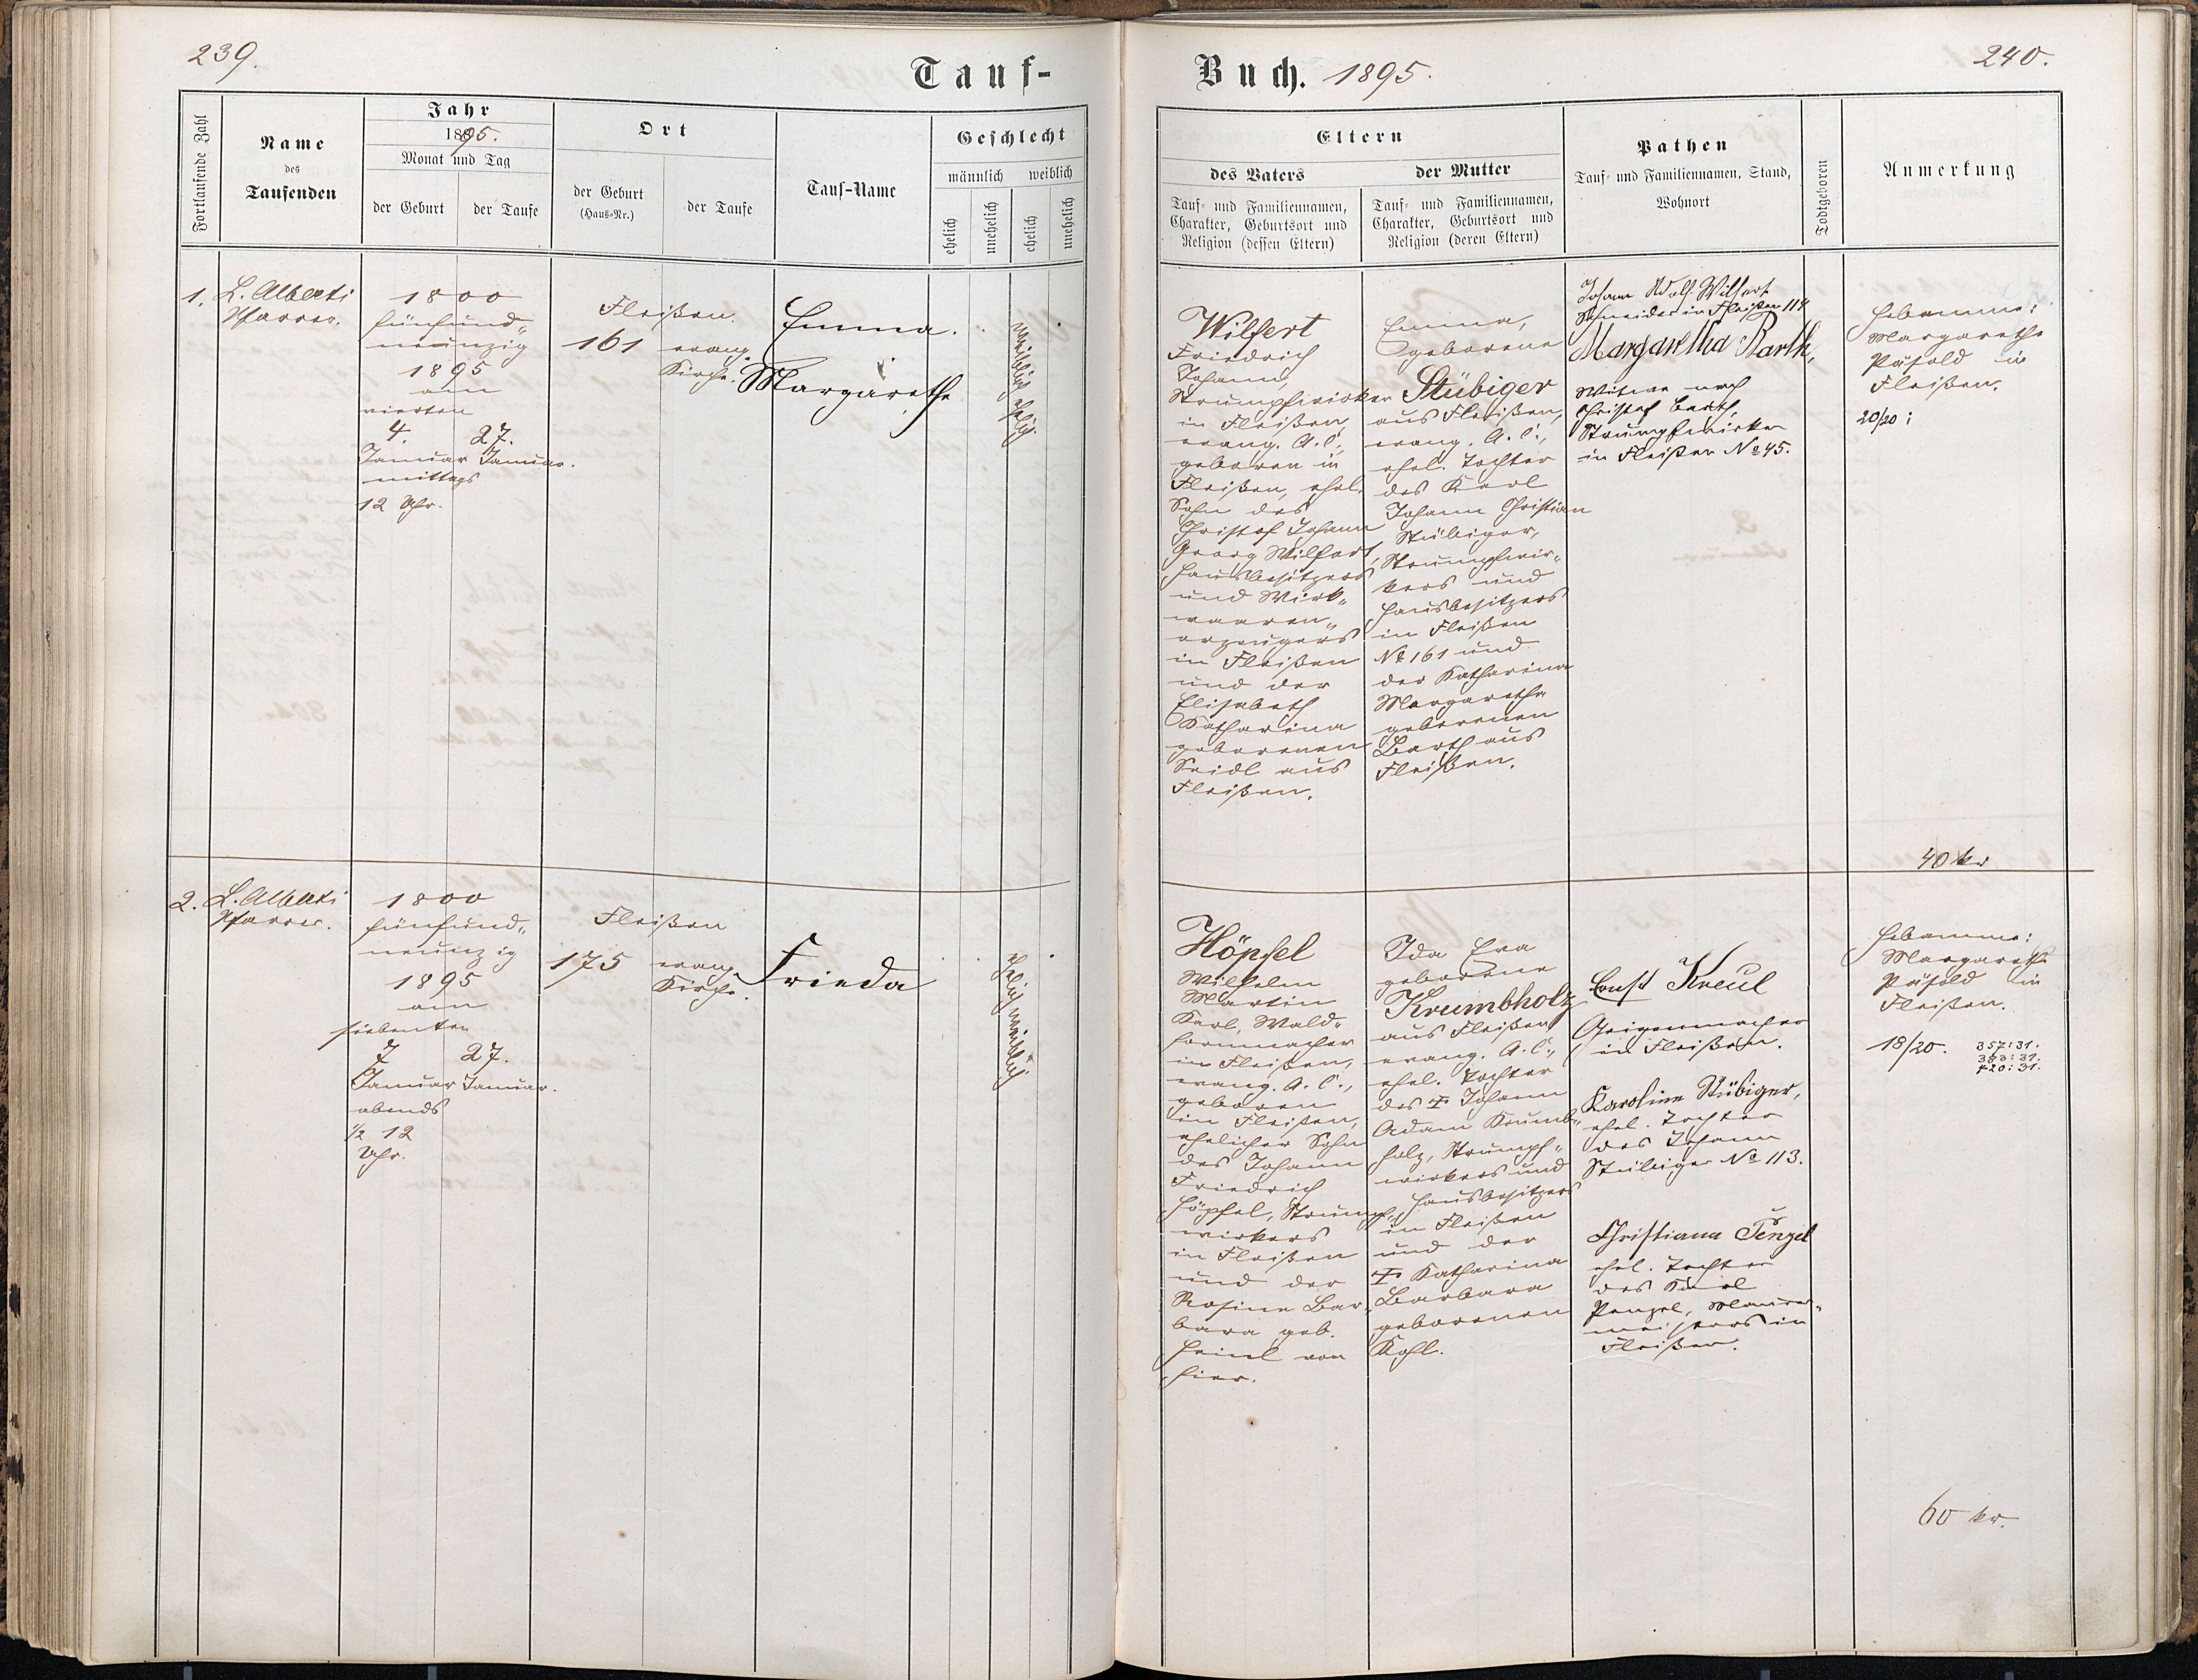 239.
Tauf-
Fortlaufende Zahl
Name
des
Taufenden
Jahr
1895.
Monat und Tag
der Geburt
der Taufe
Ort
der Geburt
(Haus-Nr.)
der Taufe
Tauf-Name
Geschlecht
männlich
weiblich
ehelich
unehelich
ehelich
unehelich
1.
L. Alberti
Pfarrer.
1800
fünfund„
neunzig
1895
am
vierten
4.
Januar
mittags
12 Uhr.
27.
Januar.
Fleißen.
161
evang.
Kirche.
Emma.
Margarethe
weiblich ehelich
2.
L. Alberti
Pfarrer.
1800
fünfund„
neunzig
1895
am
siebenten
7
Januar
abends
½ 12
Uhr.
27.
Januar.
Fleißen
175
evang.
Kirche.
Frieda
ehelich weiblich
Buch. 1895.
240.
Eltern
des Vaters
Tauf- und Familiennamen,
Charakter, Geburtsort und
Religion (dessen Eltern)
der Mutter
Tauf- und Familiennamen,
Charakter, Geburtsort und
Religion (deren Eltern)
Pathen
Tauf- und Familiennamen, Stand,
Wohnort
Todtgeboren
Anmerkung
Wilfert
Friedrich
Johann,
Strumpfwirker
in Fleißen,
evang. A. C.,
geboren in
Fleißen, ehel.
Sohn des
Christof Johann
Georg Wilfert,
Hausbesitzers
und Wirk„
waaren„
erzeugers
in Fleißen
und der
Elisabeth
Katharina
geborenen
Seidl aus
Fleißen.
Emma,
geborene
Stübiger
aus Fleißen,
evang. A. C.,
ehel. Tochter
des Karl
Johann Christian
Stübiger,
Strumpfwir„
kers und
Hausbesitzers
in Fleißen
No 161 und
der Katharina
Margaretha
geborenen
Barth aus
Fleißen.
Johann Adolf Wilfert
Schneider in Fleißen 114
Margaretha Barth,
Witwe nach
Christof Barth,
Strumpfwirker
in Fleißen No 45.
Hebamme:
Margaretha
in
Fleißen.
20/20:
40 kr
Höpfel
Wilhelm
Martin
Karl, Wald„
hornmacher
in Fleißen,
evang. A. C.,
geboren
in Fleißen,
ehelicher Sohn
des Johann
Friedrich
Höpfel, Strumpf„
wirkers
in Fleißen
und der
Rosine Bar„
bara geb.
Heinl von
hier.
Ida Eva
geborene
Krumbholz
aus Fleißen
evang. A. C.,
ehel. Tochter
des † Johann
Adam Krumb„
holz, Strumpf„
wirkers und
Hausbesitzers
in Fleißen
und der
† Katharina
Barbara
geborenen
Kohl.
Ernst Kreul
Geigenmacher
in Fleißen.
Karoline Stübiger,
ehel. Tochter
des Johann
Stübiger No 113.
Christiana Penzel
ehel. Tochter
des Karl
Penzel, Maurer„
meisters in
Fleißen.
Hebamme:
Margaretha
in
Fleißen.
18/20.
357:31.
383:31.
420:31.
60 kr.